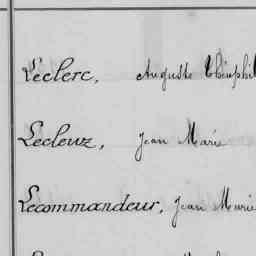 Léclerc, Auguste Théophil
Lecleuz, Jean Marie
Lecommandeur, Jean Marie